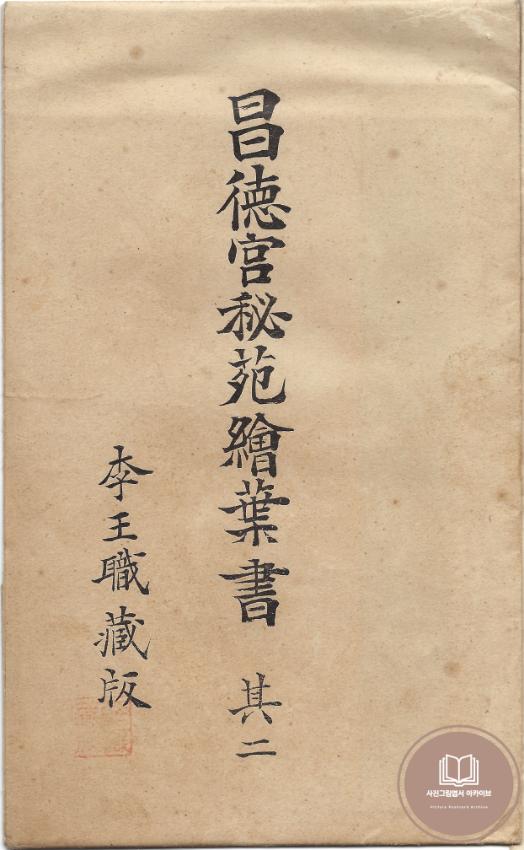 昌德宮秘苑繪葉書 其二
李王職藏版
사진그림엽서 아카이브
Picture Postcard Archive